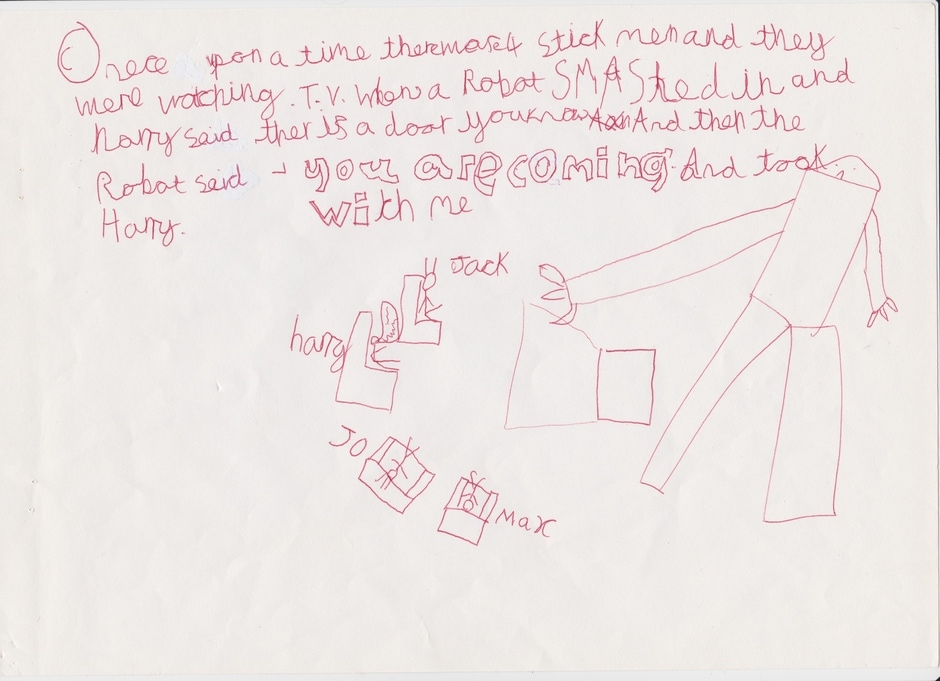 Onece upon a time therewase4 stick men and they
were watching. T.V. When a Robot SMASHed in and
harry said there is a door you know And then the
Robot said - you are coming. And took
Harry. with me
Jack
harry
JO
Max